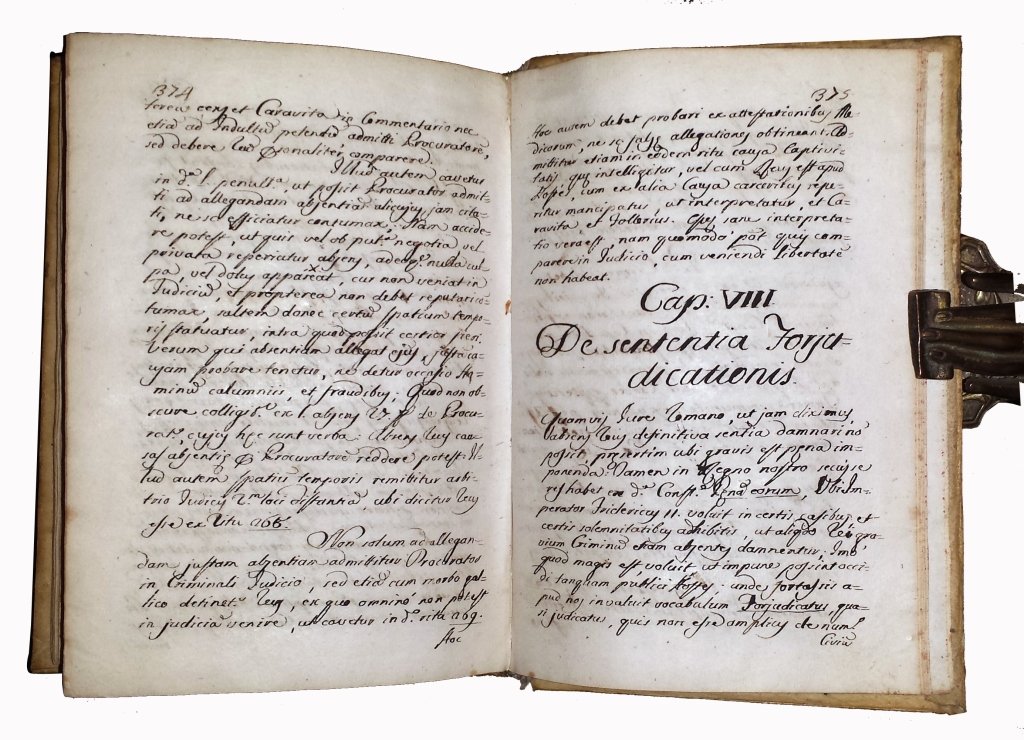 374
terea censet Caravita in Commentario nec
etiã ad Indultũ petendũ admitti Procuratorẽ,
sed debere Reũ psonaliter comparere.
Illud autem cavetur
in d.ª l. penult.ª, ut possit Procurator admit=
ti ad allegandam absentiã alicujus jam cita=
ti, ne sic efficiatur contumax. Nam accide=
re potest, ut quis vel ob pub.ª negotia vel
privata reperiatur absens, adeoq; nulla cul=
pa, vel dolus appareat, cur non veniat in
Judiciũ, et propterea non debet reputari co=
tumax, saltem donec certũ spatium tempo=
ris statuatur, intra quod possit certior fieri,
Verum qui absentiam allegat ejus, justã ca=
usam probare tenetur, ne detur occasio Ho=
minũ calumniis, et fraudibus; Quod non ob=
scure colligit.r ex l. absens V. ff. de Procu=
rat.s, cujus hęc sunt verba: Absens Reus cau=
sas absentię p Procuratorẽ reddere potest: Il=
lud autem spatiũ temporis remittitur arbi=
trio Judicis loci distantiã ubi dicitur Reus
esse ex Ritu 268.
Non solum ad allegan=
dam justam absentiam admittitur Procurator
in Criminali Judicio, sed etiã cum morbo gal=
lico detinet.r Reus, ex quo omninò non potest
in judiciũ venire, ut cavetur in d.º ritu 269.
Hoc
375
Hoc autem debet probari ex attestationibus Me=
dicorum, ne sic falsę allegationes obtineant. Ad=
mittitur etiam in eodem ritu causa Captivi=
tatis, quę intelligitur, vel cum Reus est apud
Hostes, cum ex alia Causa carceribus repe=
ritur mancipatus, ut interpretatur, et Ca=
ravita, et Follerius. Quę sane interpreta=
tio vera est, nam quomodò pot. quis com=
parere in Judicio, cum veniendi libertatẽ
non habeat.
Cap: VIII
De sententia Forju=
dicationis.
Quamvis Jure Romano, ut jam diximus,
absens Reus definitiva sentia damnari nõ
possit, presertim ubi gravis est pęna im=
ponenda Tamen in Regno nostro secus se
res habet ex d.ª Const.e Pęnã eorum, Ubi Im=
perator Fridericus II. voluit in certis casibus, et
certis solemnitatibus adhibitis, ut aliqdo Rei gra=
vium Criminũ etiam absentes damnentur; Imò
quod magis est voluit, ut impune possint occi=
di tanquam publici Hostes; unde fortassis a=
pud nos invaluit vocabulum Forjudicatus, qua=
si judicatus, quis non esse amplius de num.º
Civiũ